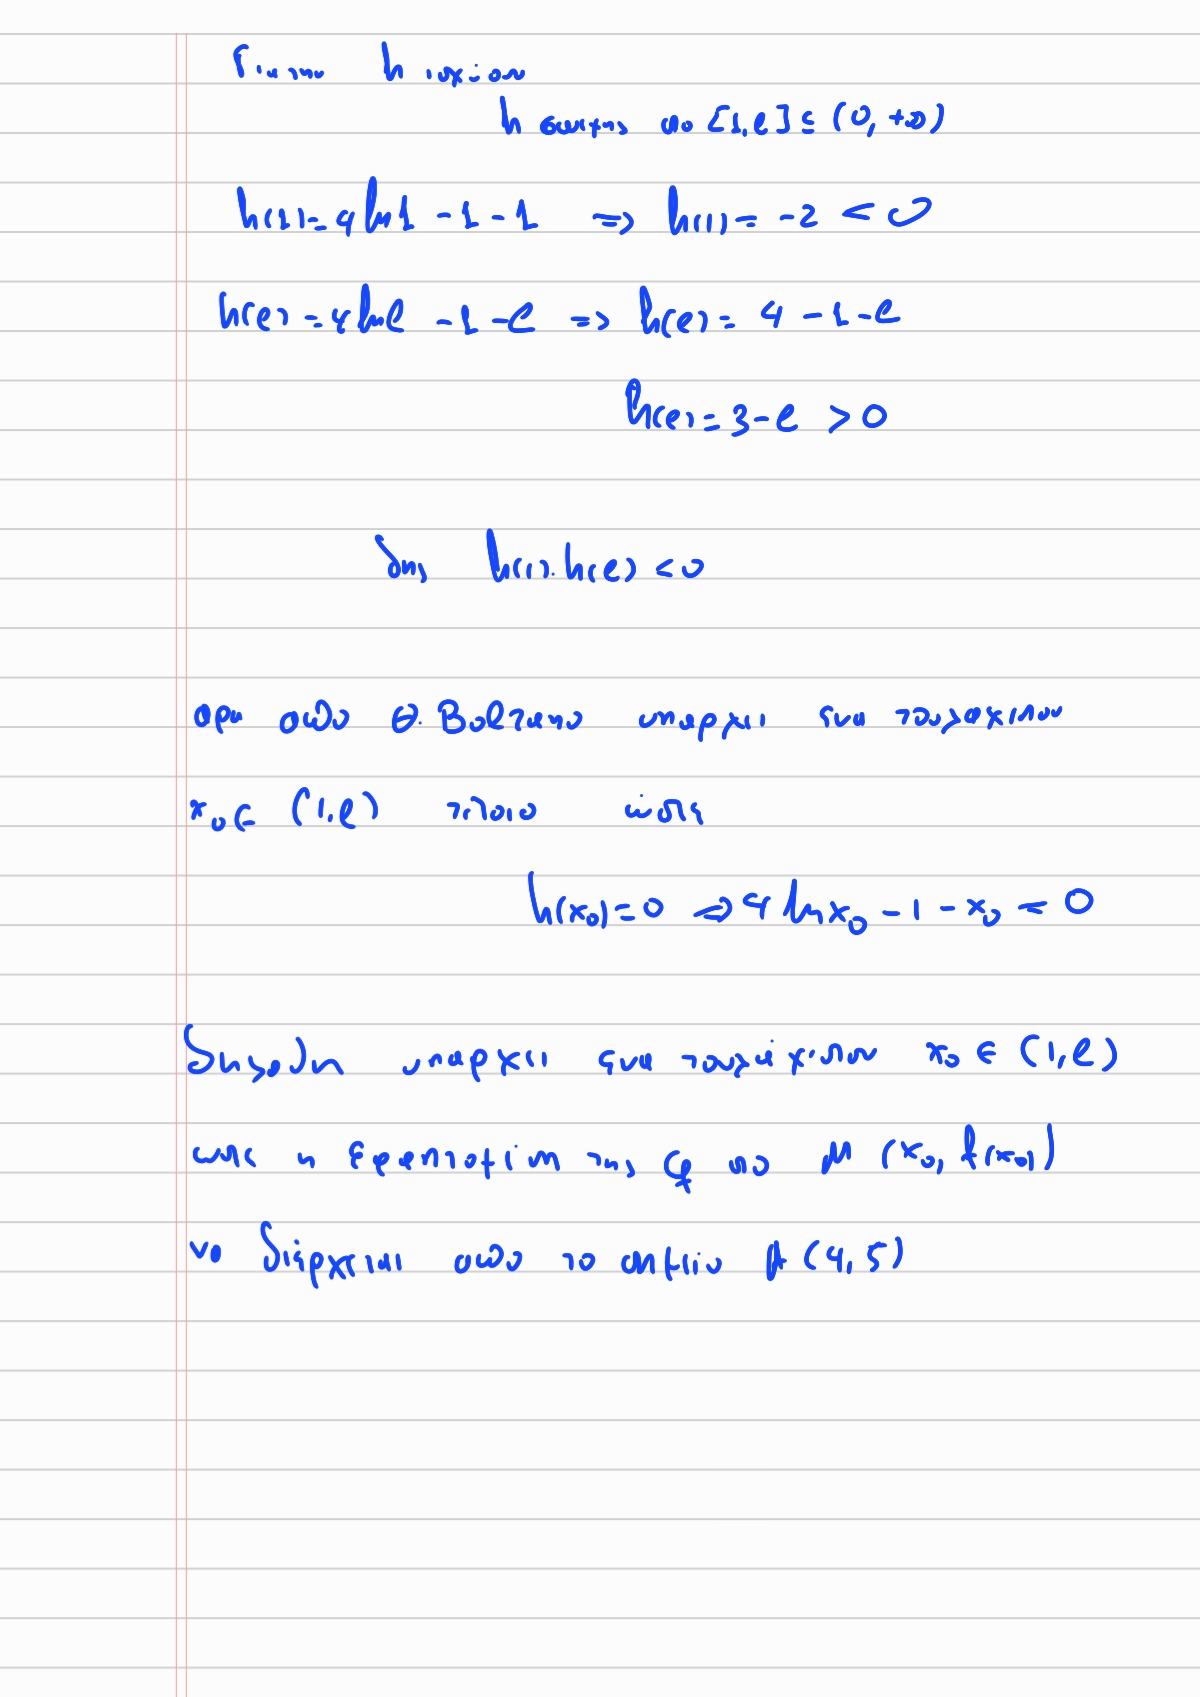 Για την h ισχύουν
h συνεχής στο [1,e] ⊆ (0, +∞)
h(1) = 4 ln1 - 1 - 1 => h(1) = -2 < 0
h(e) = 4 lne - 1 - e => h(e) = 4 - 1 - e
h(e) = 3 - e > 0
δης h(1).h(e) < 0
αρα απο Θ. Bolzano υπαρχει ένα τουλαχιστον
x₀ ∈ (1,e) τέτοιο ώστε
h(x₀) = 0 => 4 lnx₀ - 1 - x₀ = 0
δηλαδη υπαρχει ένα τουλάχιστον x₀ ∈ (1,e)
ωστε η εφαπτομένη της Cf στο M (x₀, f(x₀))
να διέρχεται απο το σημείο A (4,5)